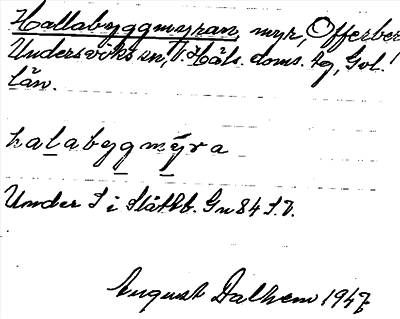 Hallabyggmyran, myr, Offerber
Undersviks sn, V. Häls. doms. tg, Gvl.
län.
halabygmýra
Under I i Slåtkb. Gn 84 I.D.
August Dalhem 1947.